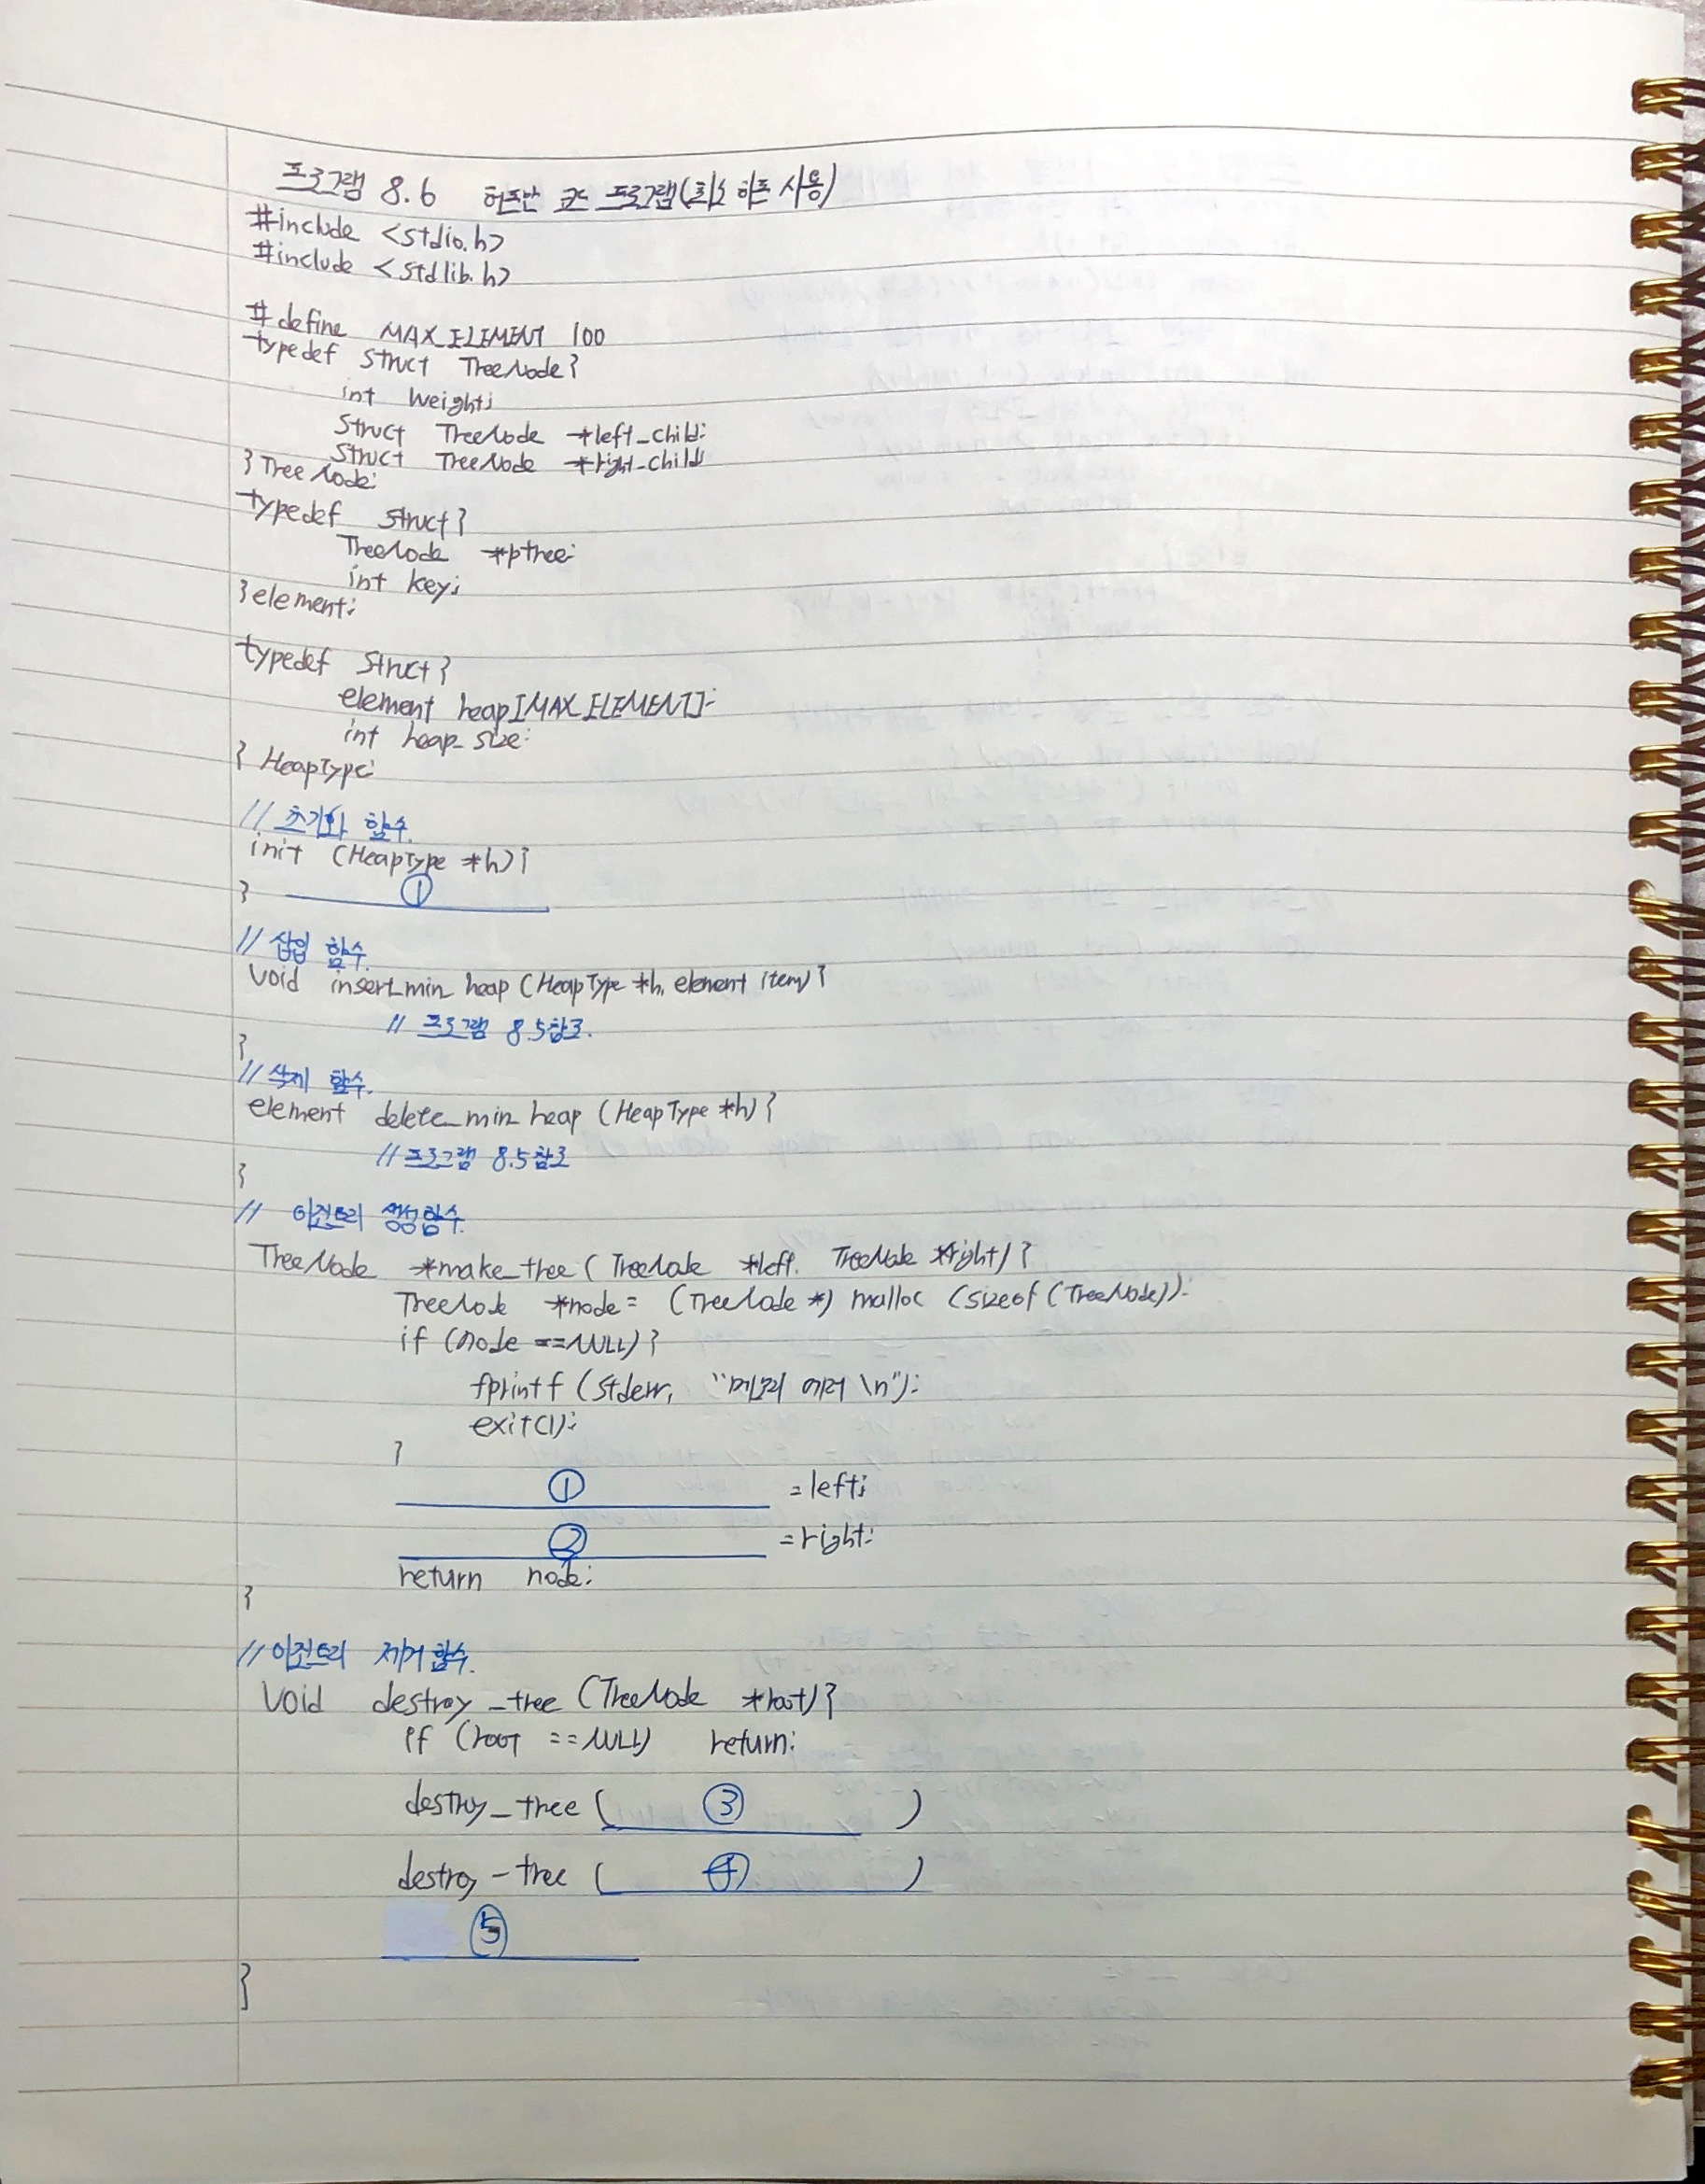 프로그램 8.6 허프만 코드 프로그램(최소 히프 사용)
#include <stdio.h>
#include <stdlib.h>
#define MAX_ELEMENT 100
typedef struct TreeNode{
int weight;
struct TreeNode *left_child;
struct TreeNode *right_child;
} TreeNode;
typedef struct{
TreeNode *ptree;
int key;
} element;
typedef struct{
element heap[MAX_ELEMENT];
int heap_size;
} HeapType;
// 초기화 함수.
init (HeapType *h){
① 
}
// 삽입 함수.
void insert_min_heap (HeapType *h, element item){
// 프로그램 8.5참조.
}
// 삭제 함수.
element delete_min_heap (HeapType *h){
// 프로그램 8.5참조
}
// 이진트리 생성함수.
TreeNode *make_tree ( TreeNode *left, TreeNode *right){
TreeNode *node = (TreeNode *) malloc (sizeof (TreeNode));
if (node ==NULL){
fprintf (stderr, "메모리 에러 \n");
exit(1);
}
① =left;
② =right;
return node;
}
// 이진트리 제거함수.
void destroy_tree (TreeNode *root){
if (root ==NULL) return;
destroy_tree ( ③ )
destroy_tree ( ④ )
⑤
}